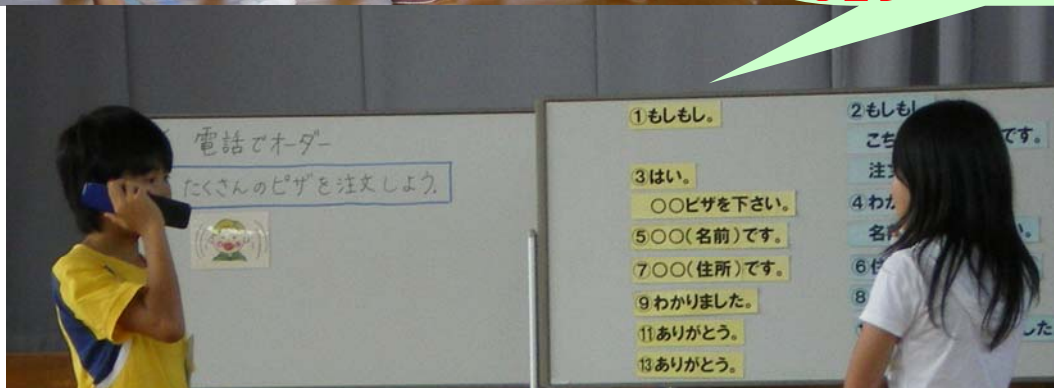 電話でオーダー
たくさんのピザを注文しよう。
①もしもし。
③はい。
○○ピザを下さい。
⑤○○(名前)です。
⑦○○(住所)です。
⑨わかりました。
⑪ありがとう。
⑬ありがとう。
②もしも
こち
です。
注
④わか
名
⑥住
⑧
した